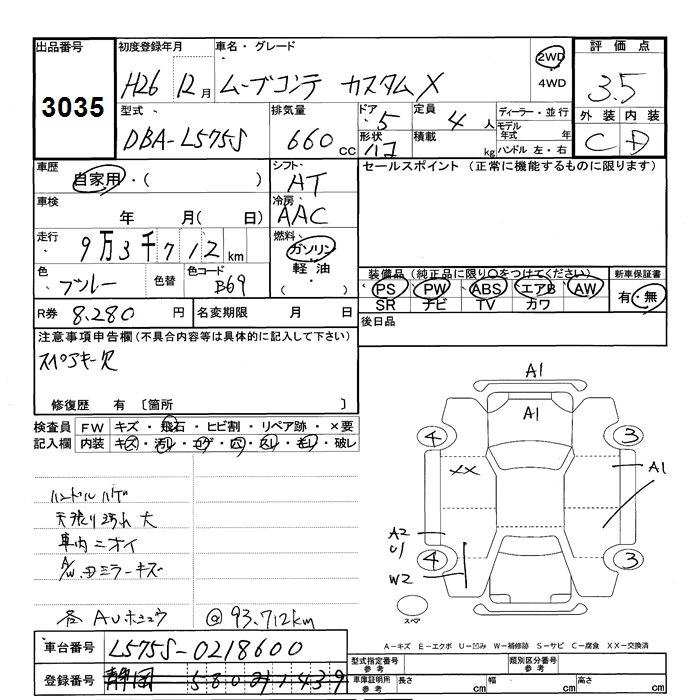 出品番号
3035
初度登録年月
H26 12月
車名・グレード
ムーブコンテ カスタムX
2WD
4WD
評価点
3.5
外装 内装
C D
型式
DBA-L575S
排気量
660cc
ドア
5
形状
ハコ
定員
4人
積載
kg
ディーラー・並行
モデル年式 年
ハンドル 左・右
車歴
自家用・( )
シフト
AT
車検
年 月( 日)
冷房
AAC
走行
9万3千712km
燃料
ガソリン
軽油
( )
色
ブルー
色替
色コード
B69
R券 8.280円
名変期限 月 日
セールスポイント (正常に機能するものに限ります)
装備品(純正品に限り○をつけてください)
PS PW ABS エアB AW
SR ナビ TV カワ
新車保証書
有・無
後日品
注意事項申告欄(不具合内容等は具体的に記入して下さい)
スペアキー欠
修復歴 有 〔箇所 〕
検査員記入欄
FW キズ・飛石・ヒビ割・リペア跡・×要
内装 キズ・汚レ・コゲ・穴・スレ・モレ・破レ
ハンドルハゲ
天張り汚れ大
車内ニオイ
A/W.ミラーキズ
各AUホショウ
@93.712km
A1
A1
4
3
XX
A1
A2
U1
4
3
W2
スペア
A-キズ E-エクボ U-凹み W-補修跡 S-サビ C-腐食 XX-交換済
車台番号 L575S-0218600
登録番号 静岡 580
型式指定番号 参考
類別区分番号 参考
車庫証明用 参考
長さ cm
幅 cm
高さ cm